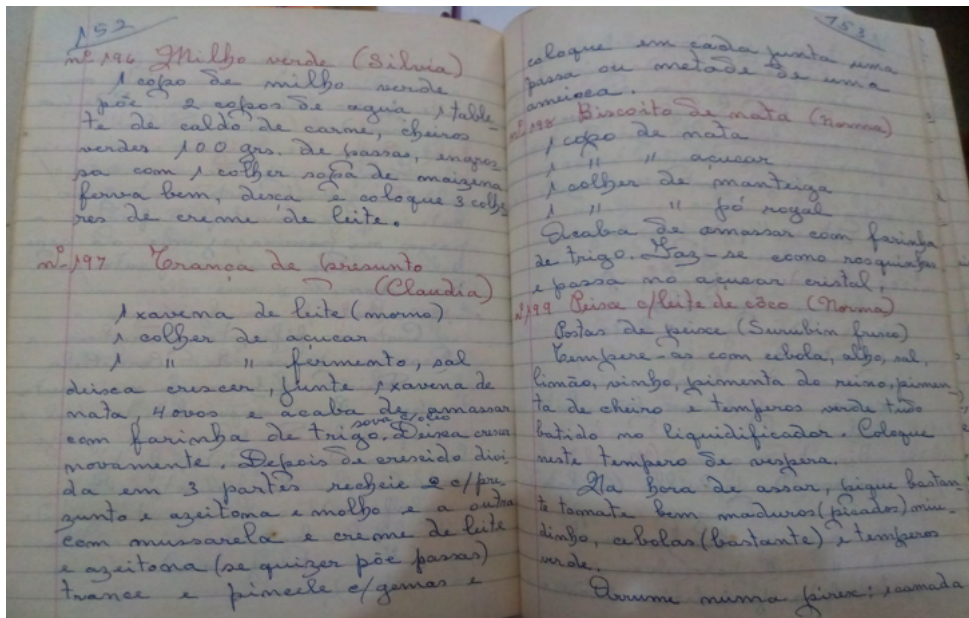 152
nº 196 Milho verde (Silvia)
1 copo de milho verde
põe 2 copos de agua 1 table-
te de caldo de carne, cheiros
verdes 100 grs. de passas, engros
sa com 1 colher sopa de maizena
ferva bem, desca e coloque 3 colhe
res de creme de leite.
nº 197 Trança de presunto
(Claudia)
1 xavena de leite (morno)
1 colher de açucar
1 " " fermento, sal
deixa crescer, junte 1 xavena de
nata, 4 ovos e acaba de amassar
sova
com farinha de trigo. Deixa cresce
novamente. Depois de crescido divi
da em 3 partes recheie 2 c/pre
zunto e azeitona e molho e a outra
com mussarela e creme de leite
e azeitona (se quizer põe passas)
trance e pincele c/gemas e
153
coloque em cada junta uma
passa ou metade de uma
ameixa.
nº 198 Biscoito de nata (Norma)
1 copo de nata
1 " " açucar
1 colher de manteiga
1 " " pó royal
Acaba de amassar com farinha
de trigo. Faz-se como rosquinhas
e passa no açucar cristal.
199 Peixe c/leite de côco (Norma)
Postas de peixe (Surubin fresco)
Tempere-as com cebola, alho, sal,
limão, vinho, pimenta do reino, pimen
ta de cheiro e temperos verde tudo
batido no liquidificador. Coloque
neste tempero de vespera.
Na hora de assar, pique bastan-
te tomate bem maduros (picados) miu-
dinho, cebolas (bastante) e temperos
verde.
Arrume numa pirex: 1 camada